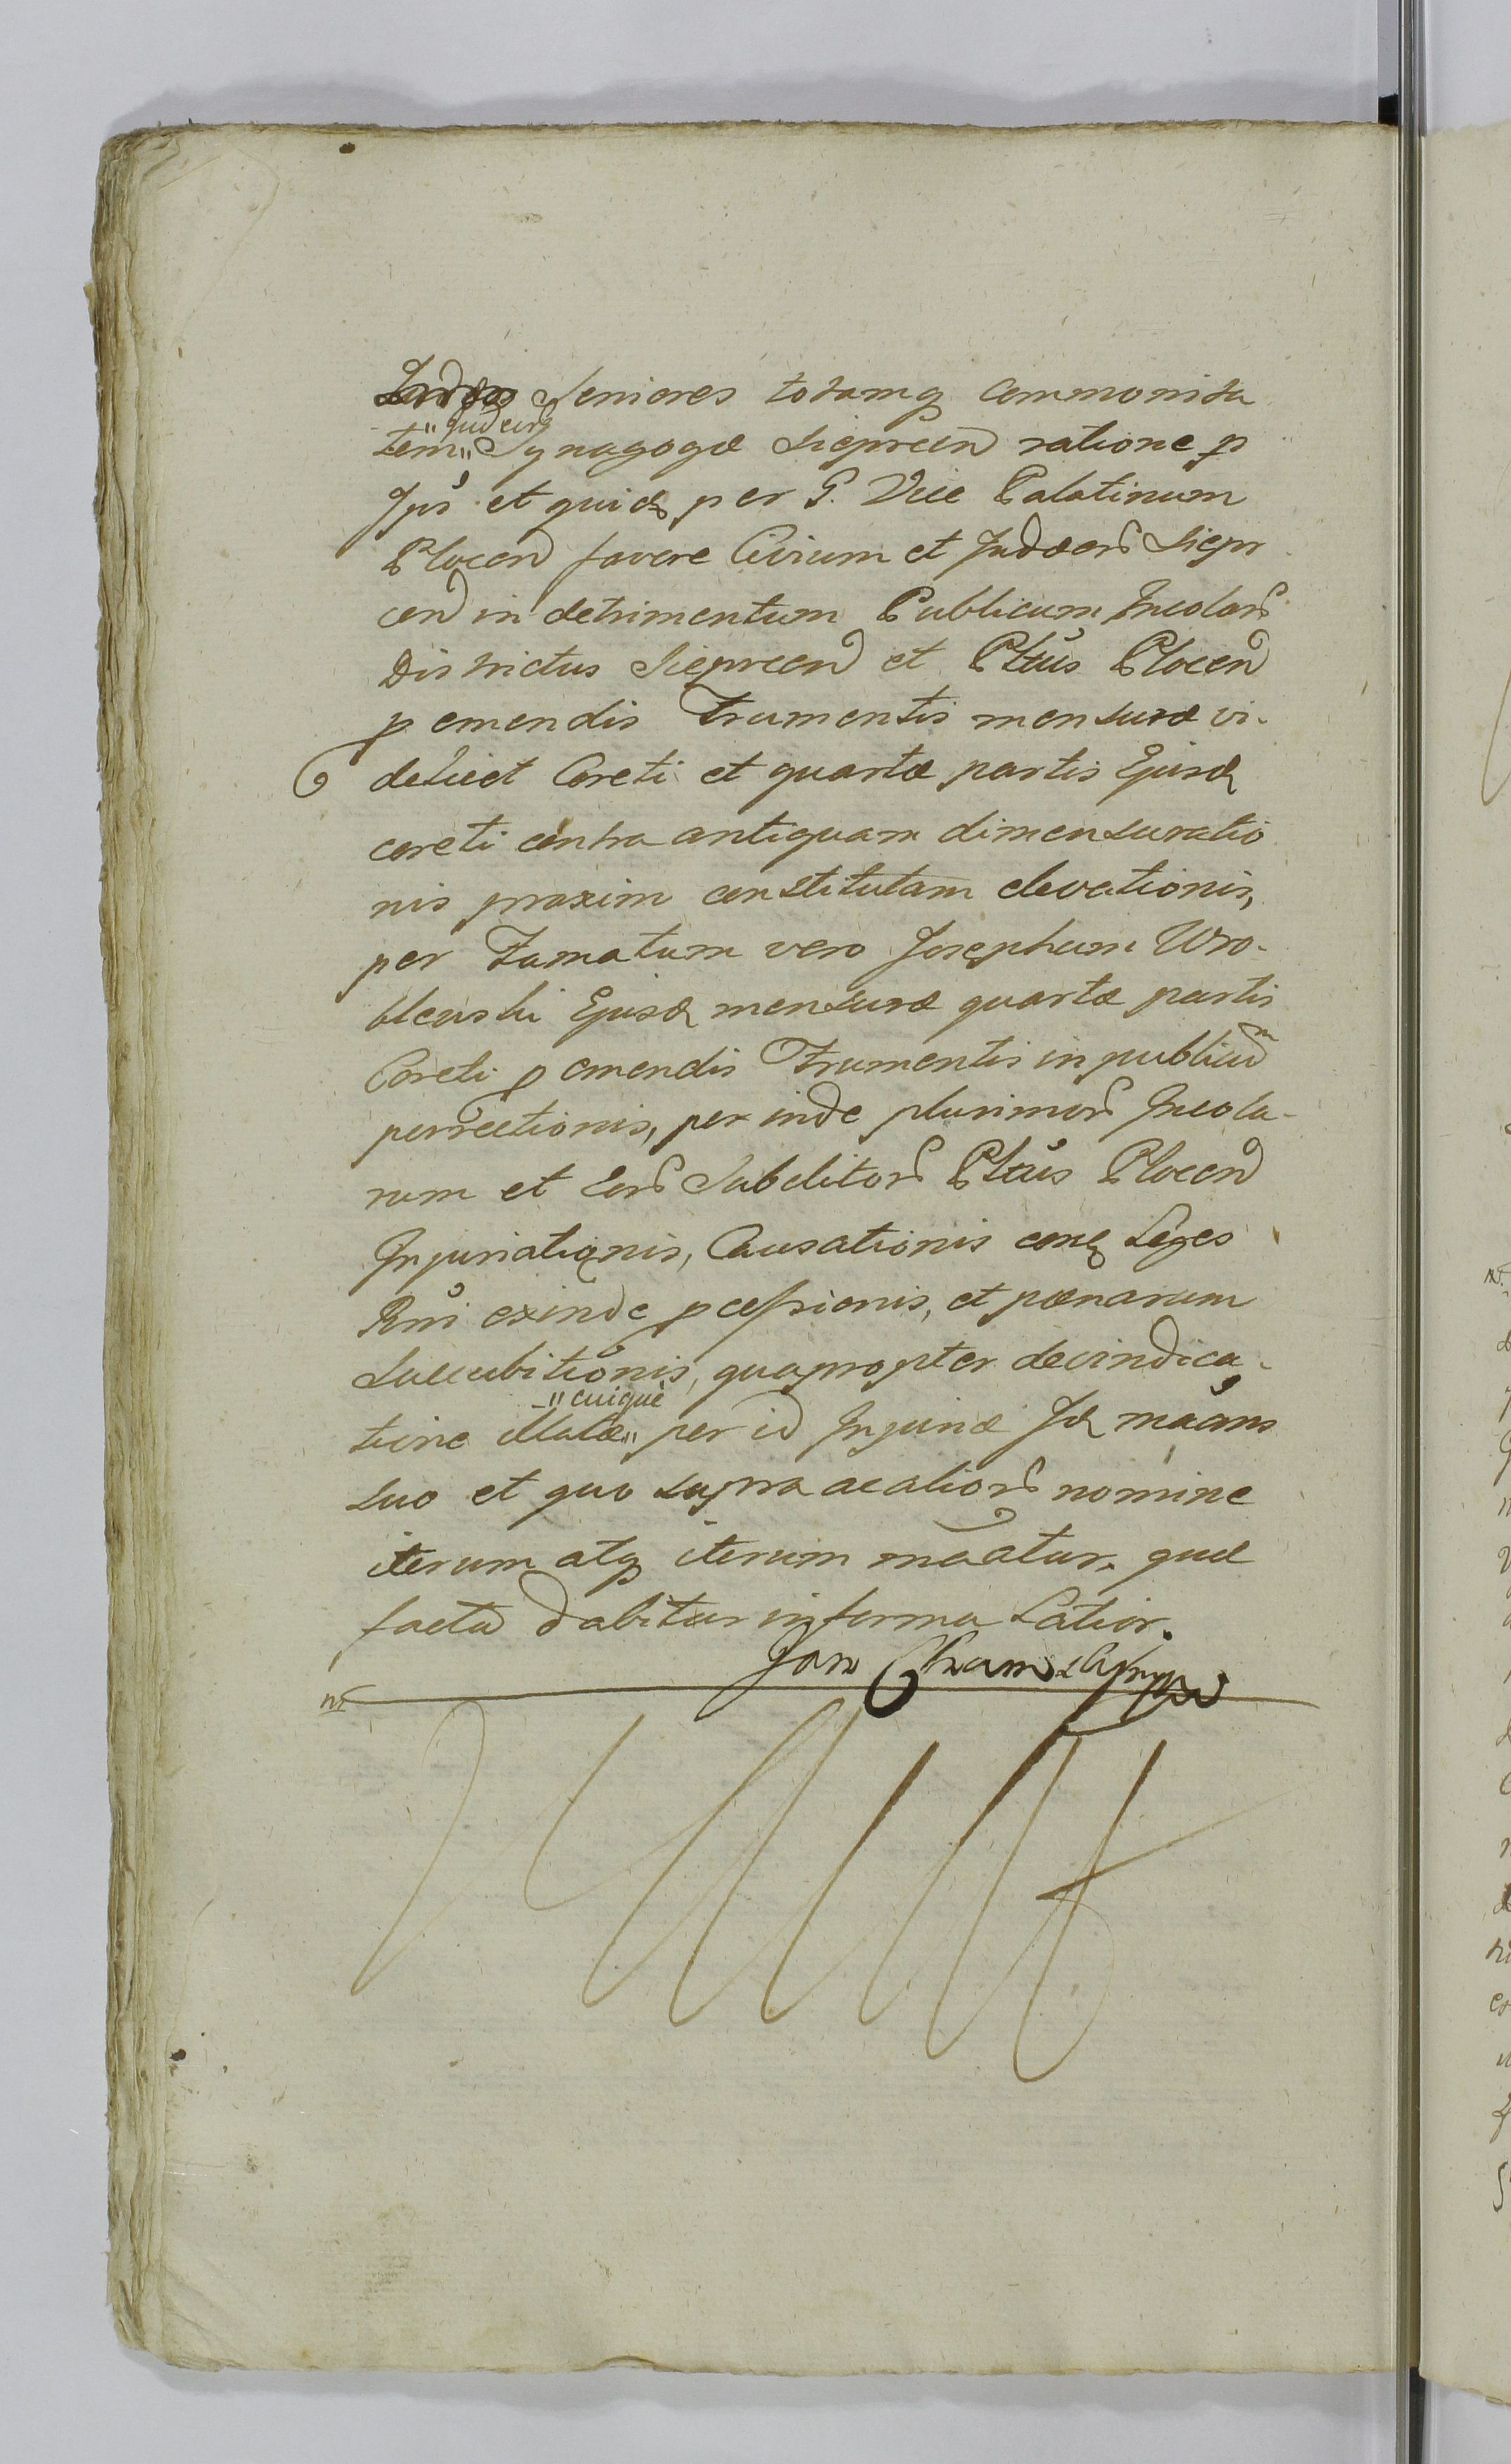 Seniores totamq Communita
"Judeors
tem" Synagogæ Sieprcen ratione p
Ipś et quide per G. Vice Palatinum
Plocen favore Civium et Judæors Siepr
cen in detrimentum Publicum Incolars
Districtus Sieprcen et Pltús Plocen
p emendis Frumentis mensuræ vi-
delicet Coreti et quartæ partis Ejusd
coreti contra antiquam dimensuratio
nis praxim constitutam elevationis,
per Famatum vero Josephum Wro-
blewski Ejusd mensuræ quartæ partis
Coreti p emendis Frumentis in publicum
porrectionis, per inde plurimors Incola-
rum et Eors Subditors Pltús Plocen
Injuriationis, Causationis conq Leges
Rni exinde pcessionis, et pænarum
Succubitionis, quapropter devindica-
-"cuique
tione illatæ" per id Injuriæ Id maans
suo et quo supra acaliors nomine
iterum atq iterum maatur. quæ
facta dabitur in forma Latior.
Jan